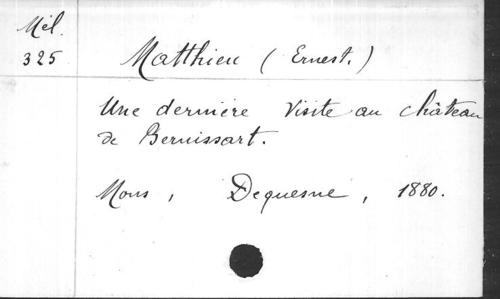 Mél.
325
Matthieu (Ernest.)
Une dernière Visite au château
de Bernissart.
Mons, Dequesne, 1880.